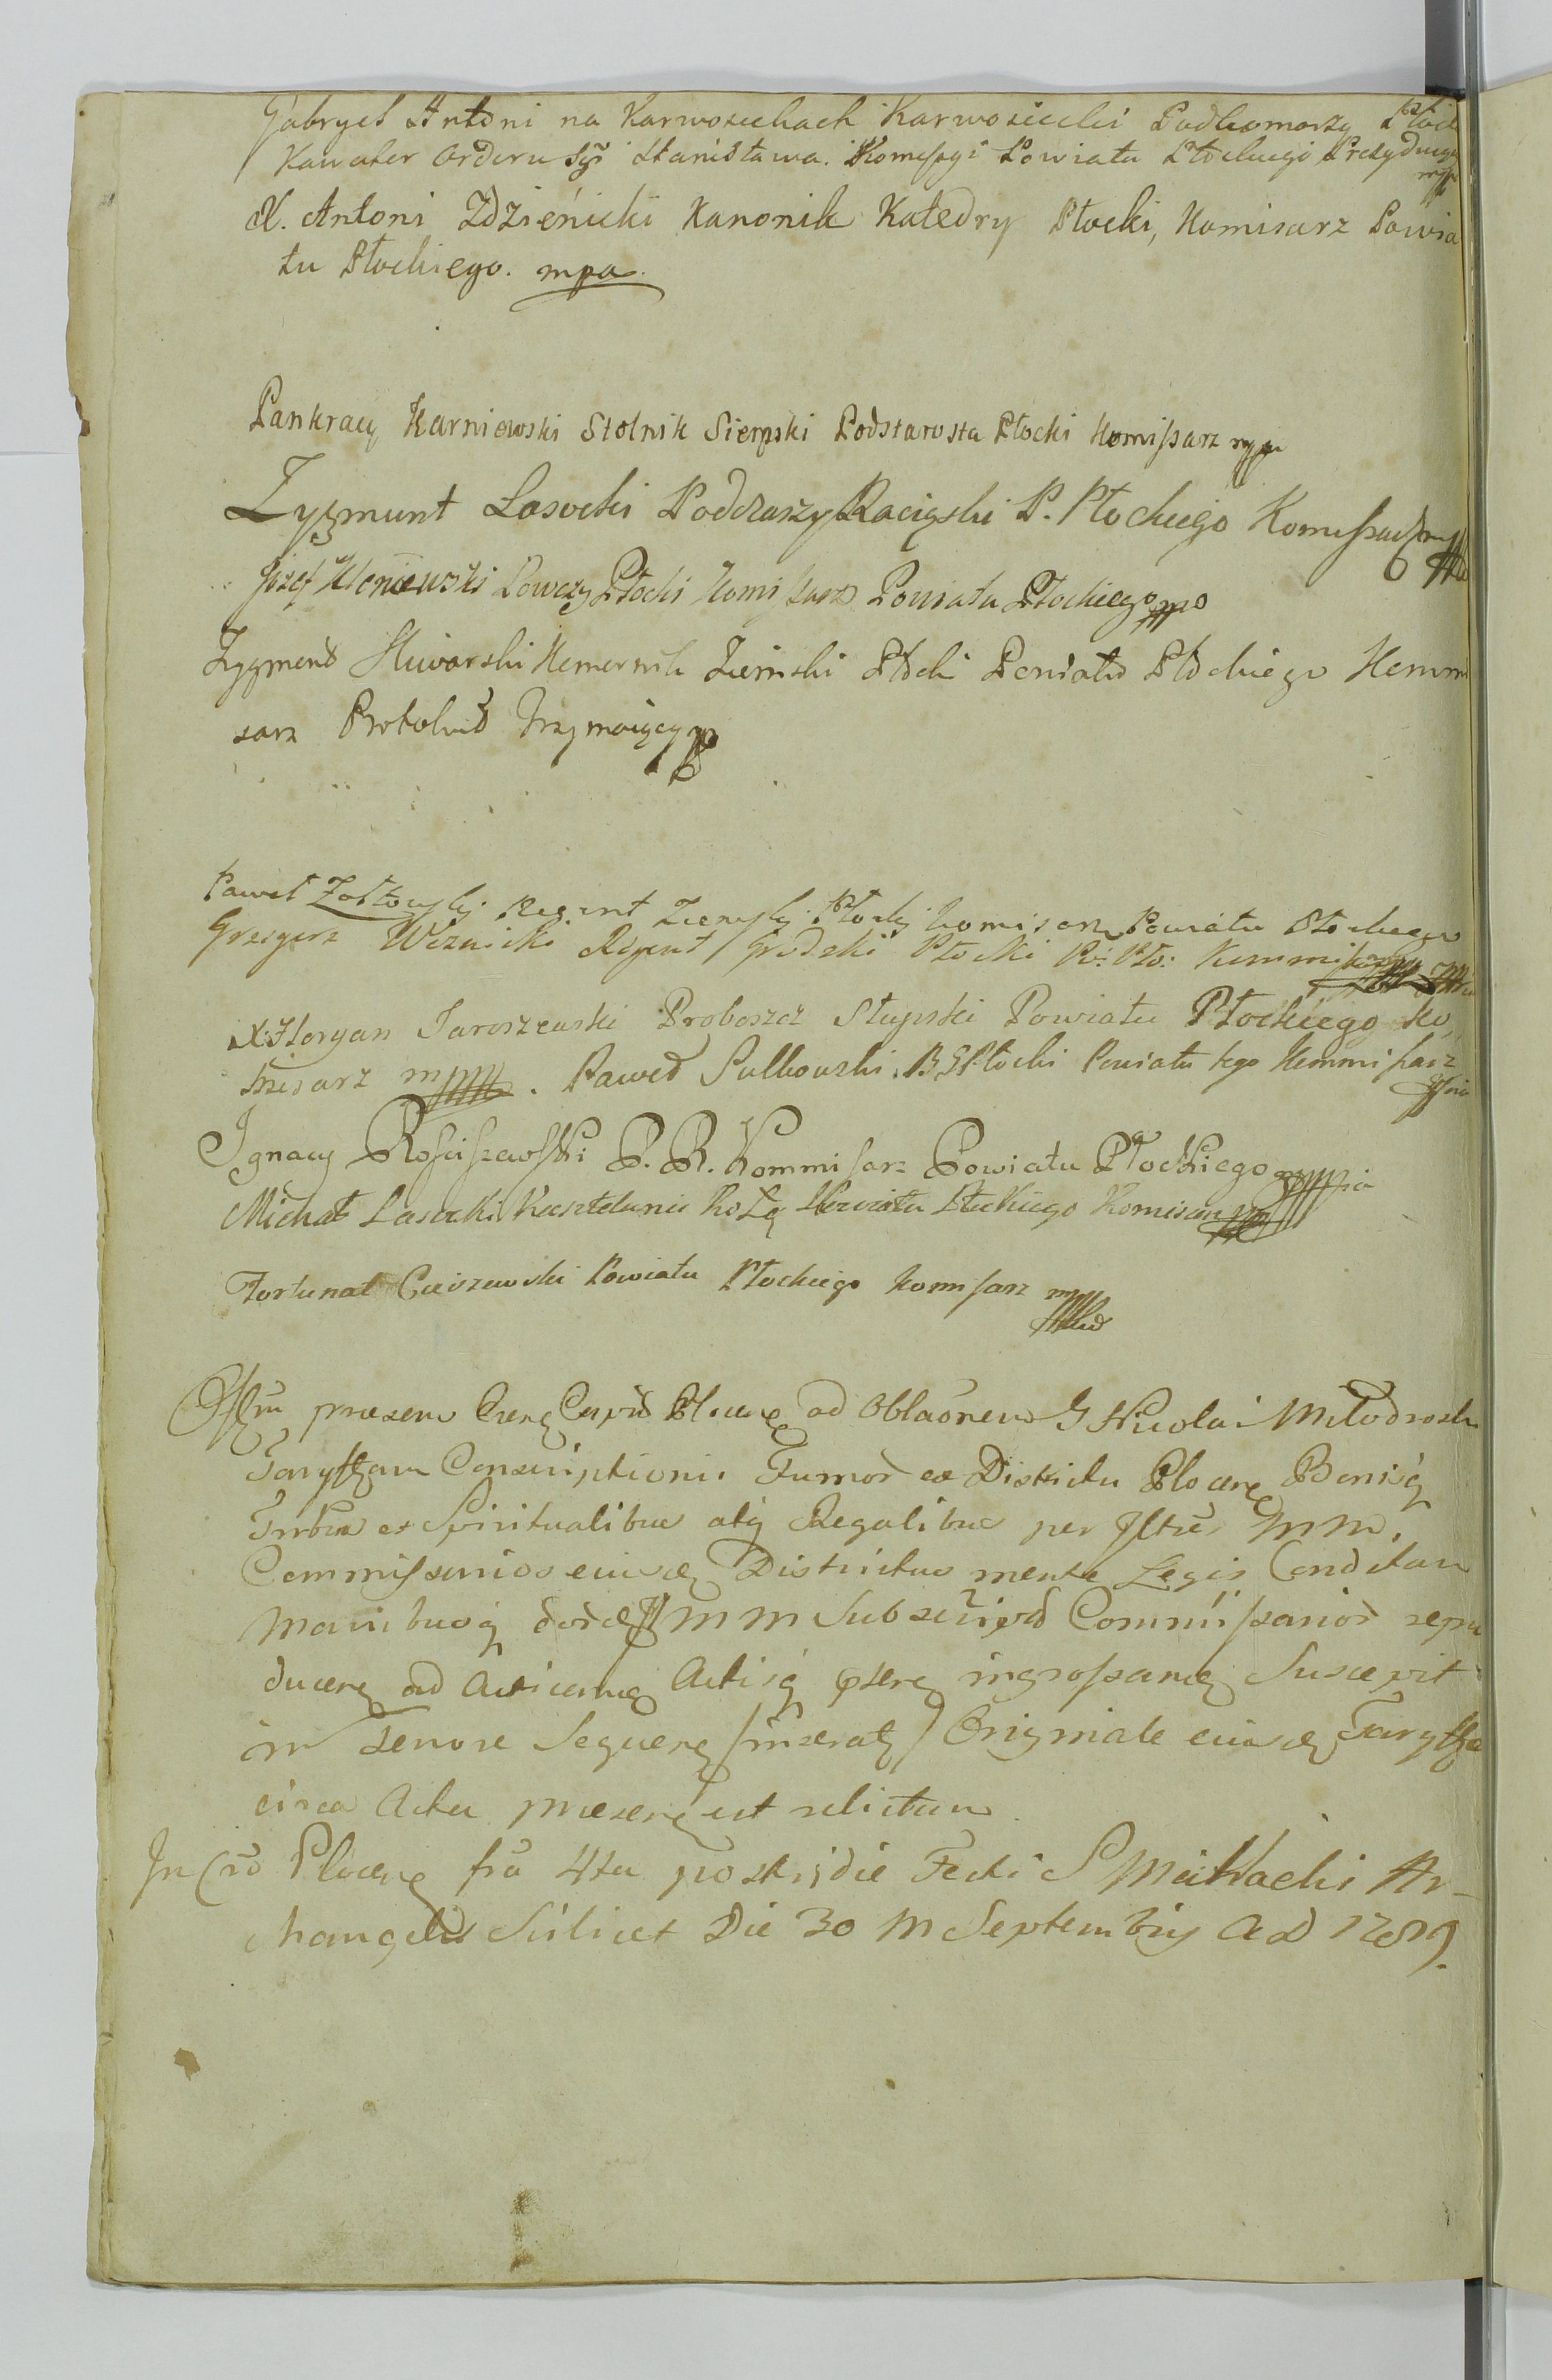 Gabryel Antoni na Karwosiekach Karwosiecki Podkomorzy Płock
Kawaler Orderu Sgo Stanisława. Komissyi Powiatu Płockiego Prezydując mpp
X. Antoni Zdzieńicki Kanonik Katedry Płocki, Komisarz Powia
tu Płockiego. mpa.
Pankracy Karniewski Stolnik Sierpski Podstarosta Płocki Komissarz mpp
Zygmunt Lasocki Podczaszy Raciąski P. Płockiego Komissarz mpp
Jozef Kleniewski Łowczy Płocki Komissarz Powiatu Płockiego mpp
Zygmond Skwarski Komornik Ziemski Płocki Powiatu Płockiego Kommi
sarz Protokuł Trzymaiący mpp
Paweł Zołtowski Regent Ziemski Płocki Komisarz Powiatu Płockiego
Grzegorz Woznicki Regent Grodzki Płocki Po: Pło: Kommissarz
X: Floryan Jaroszewski Proboszcz Słupski Powiatu Płockiego Ko
misarz mpp. Paweł Sulkowski B G Płocki Powiatu tego Kommissarz mpp
Ignacy Rosciszewski P. R. Kommisarz Powiatu Płockiego mppia
Michał Lasocki Kasztelanic Powiatu Płockiego Komisarz mpp
Fortunat Cieiszewski Powiatu Płockiego Komissarz mpp
Offm praesens Plocen ad Oblaonem G Nicolai Miłodrosk
Taryffam Conscriptionis Fumor ex Districtu Plocen Bonisq
et Spiritualibus atq Regalibus per Illres M M.
Commissarios eiusd Districtus mente Legis Conditam
Manibusq M M Subscript Commissarior repro
ducen ad Acticand Actisq ingrossand Suscepit
in Tenore Sequen /inserat/ Originale eiusd Taryffa
circa Acta praesen est relictum.
In Plocen fra 4ta postridie Festi S Michaelis Ar-
changeli Scilicet Die 30 M Septembris A D 1789.